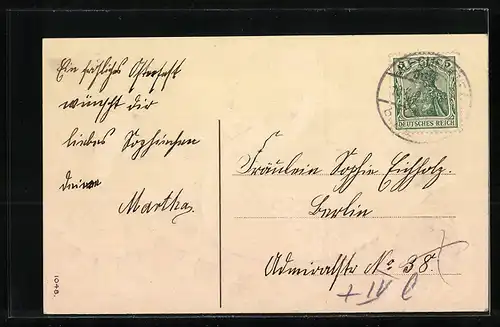 Ein fröhliches Osterfest
wünscht dir
liebes Sophiechen
deine
Martha.
Fräulein Sophie Eichholz.
Berlin
Admiralstr No 38.
DEUTSCHES REICH